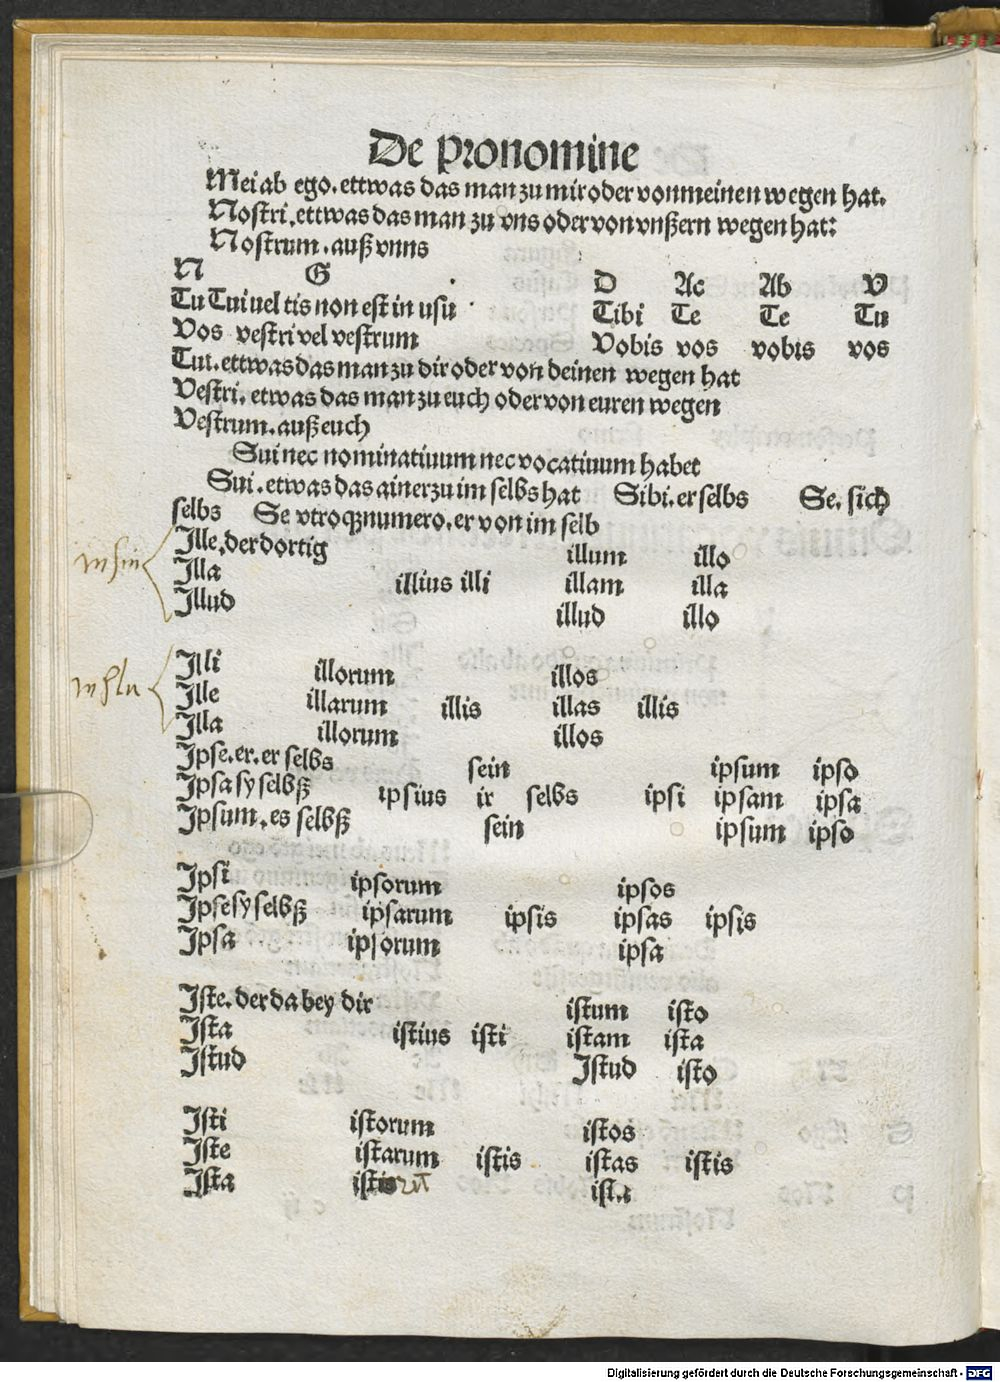 De pronomine
Mei ab ego. ettwas das man zu mir oder von meinen wegen hat.
Nostri. ettwas das man zu vns oder von vnßern wegen hat:
Nostrum. auß vnns
N G D Ac Ab V
Tu Tui uel tis non est in usu Tibi Te Te Tu
Vos vestri vel vestrum Vobis vos vobis vos
Tui. ettwas das man zu dir oder von deinen wegen hat
Vestri. etwas das man zu euch oder von euren wegen
Vestrum. auß euch
Sui nec nominatiuum nec vocatiuum habet
Sui. etwas das ainer zu im selbs hat Sibi. er selbs Se. sich
selbs Se vtroqꝫ numero. er von im selb
Ille. der dortig illum illo
Illa illius illi illam illa
Illud illud illo
Illi illorum illos
Ille illarum illis illas illis
Illa illorum illos
Ipse. er. er selbs sein ipsum ipso
Ipsa sy selbß ipsius ir selbs ipsi ipsam ipsa
Ipsum. es selbß sein ipsum ipso
Ipsi ipsorum ipsos
Ipse sy selbß ipsarum ipsis ipsas ipsis
Ipsa ipsorum ipsa
Iste. der da bey dir istum isto
Ista istius isti istam ista
Istud Istud isto
Isti istorum istos
Iste istarum istis istas istis
Ista ista
Digitalisierung gefördert durch die Deutsche Forschungsgemeinschaft - DFG